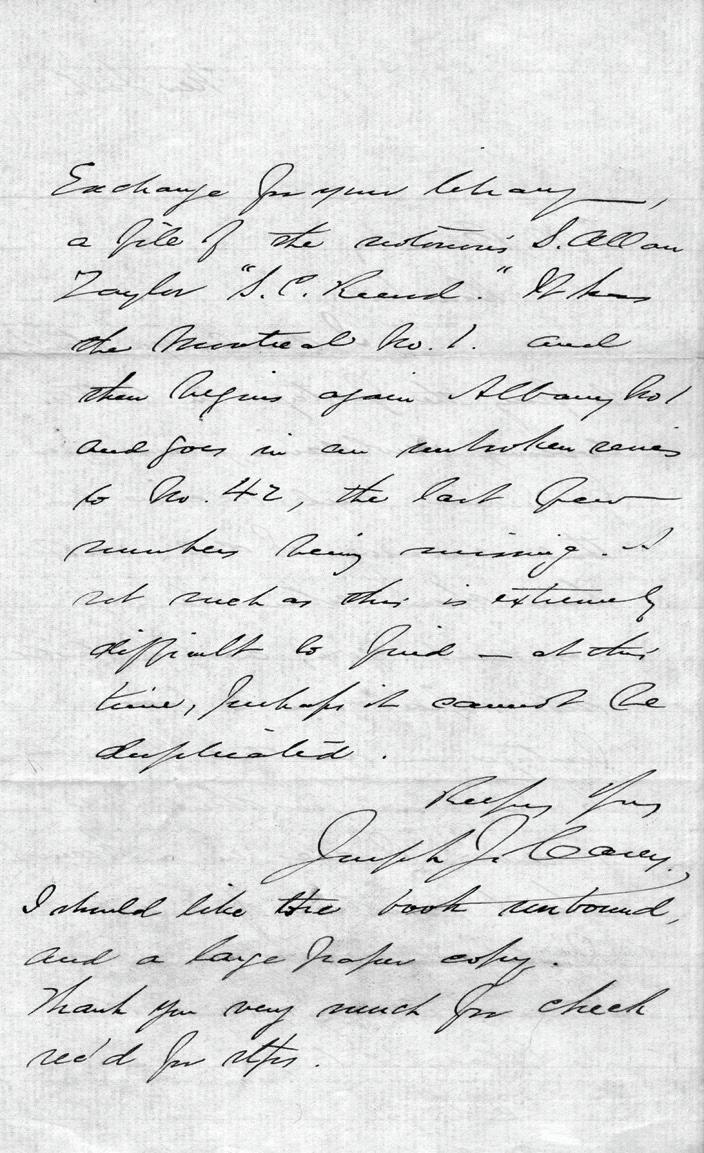 Exchange for your library,
a file of the notorious S. Allan
Taylor "S. C. Record." It has
the Montreal No. 1. and
then begins again Albany No 1
and goes in an unbroken series
to No. 42, the last few
numbers being missing. A
set such as this is extremely
difficult to find — at this
time, perhaps it cannot be
duplicated.
Respy Yrs
Joseph J. Casey.
I should like the book unbound,
and a large paper copy.
Thank you very much for check
rec'd for stps.